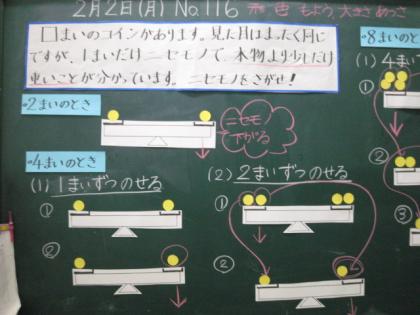 2月2日(月) No.116
形 色 もよう、大きさ、あつさ
□まいのコインがあります。見た目はまったく同じ
ですが、1まいだけニセモノで、本物より少しだけ
重いことが分かっています。ニセモノをさがせ!
2まいのとき
ニセモ
下がる
4まいのとき
(1) 1まいずつのせる
①
②
(2) 2まいずつのせる
①
②
8まいのと
(1) 4まい
①
②
③